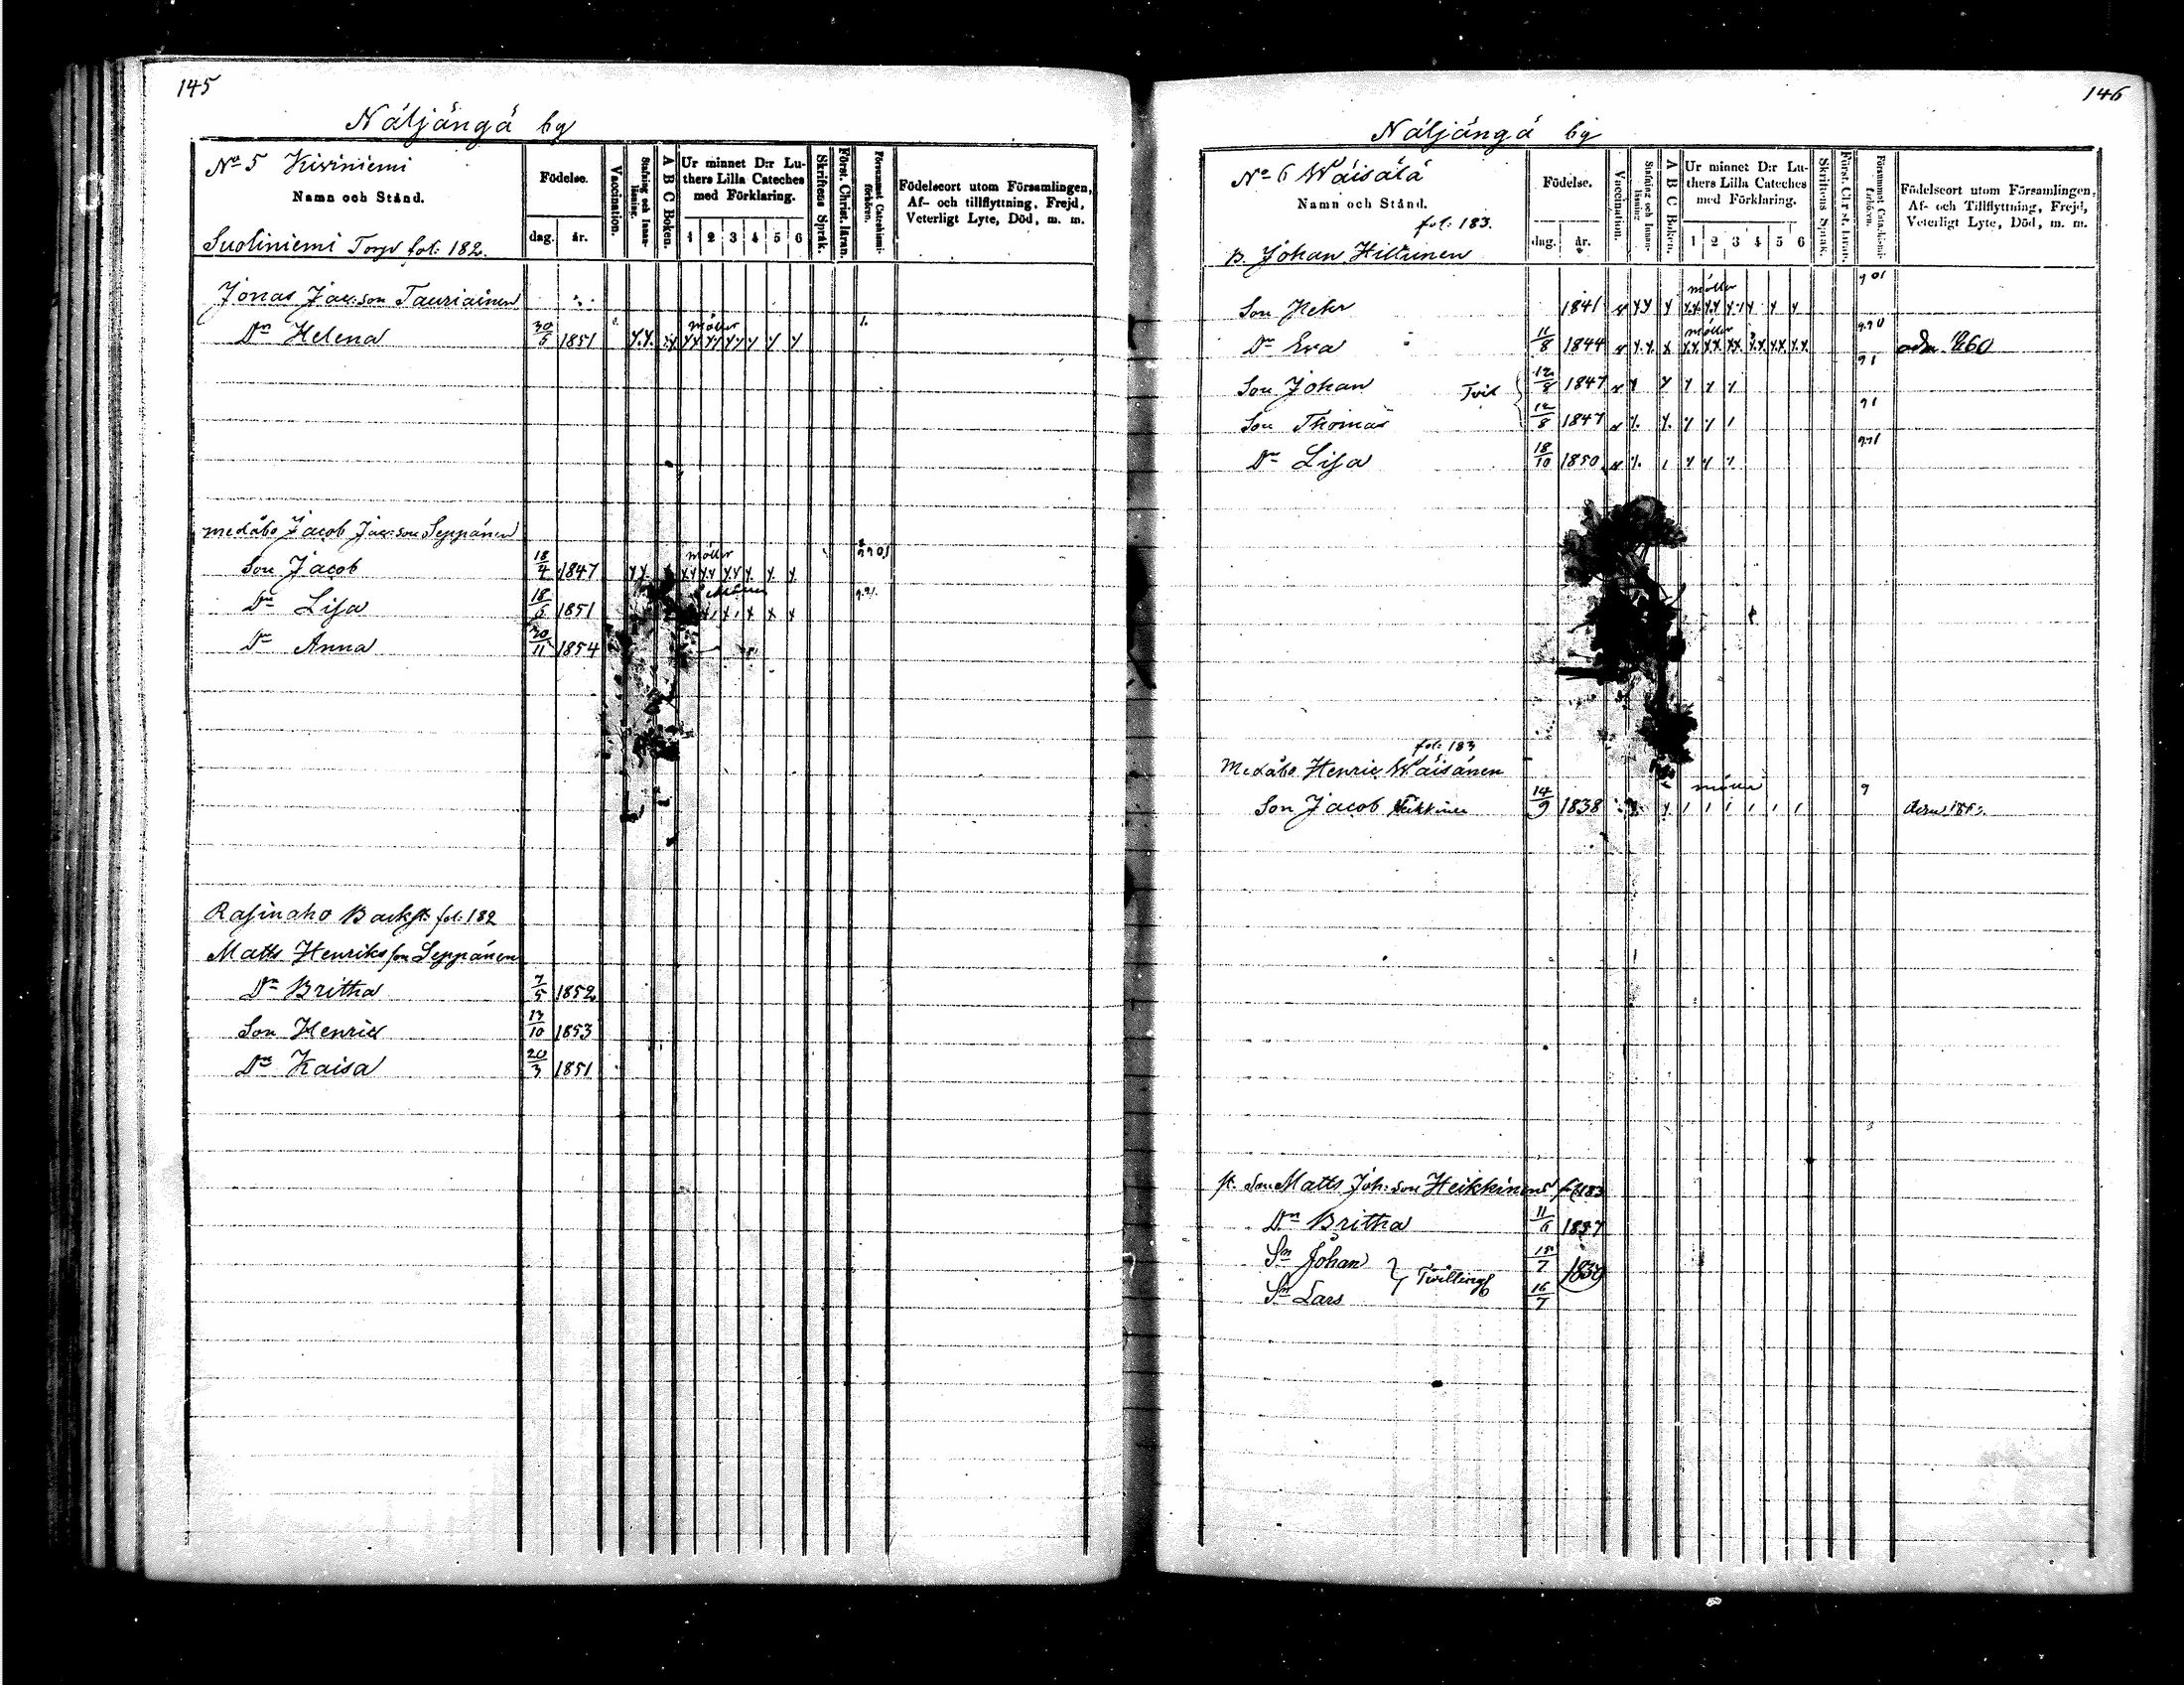 145
Näljängä by
No 5 Kiviniemi
Namn och Stånd.
Födelse.
dag. år.
Vaccination.
Stafning och Innanläsning.
A B C Boken.
Ur minnet D:r Luthers Lilla Cateches med Förklaring.
1 2 3 4 5 6
Skriftens Språk.
Först. Christ. läran.
Försummat Catechismi-förhören.
Födelseort utom Församlingen, Af- och tillflyttning, Frejd, Veterligt Lyte, Död, m. m.
Suoliniemi Torp fol: 182.
Jonas Jac:son Tauriainen
Dr Helena 30/5 1851
medåbo Jacob Jac:son Seppänen
Son Jacob 18/4 1847
Dr Lisa 18/5 1851
Dr Anna 20/11 1854
fol: 182
Matts Henriksson Seppänen
Dr Britha 7/5 1852
Son Henric 13/10 1853
Dr Kaisa 20/3 1851
146
Näljängä by
No 6 Wäisälä
Namn och Stånd.
fol: 183.
Födelse.
dag. år.
Vaccination.
Stafning och Innanläsning
A B C Boken.
Ur minnet D:r Luthers Lilla Cateches med Förklaring.
1 2 3 4 5 6
Skriftens Språk.
Först. Christ. läran.
Försummat Catechismi-förhören.
Födelseort utom Församlingen, Af- och Tillflyttning, Frejd, Veterligt Lyte, Död, m. m.
B. Johan Hiltunen
Son Peter 1841
Dr Eva 11/8 1844
Son Johan Tvil 12/8 1847
Son Thomas 12/8 1847
Dr Lisa 18/10 1850
fol: 183
Medåbo Henric Wäisänen
Son Jacob Heikkinen 14/9 1838
Matts Joh:son Heikkinen
Dr Britha 11/6
Sn Johan Tvillingr 15/7
Sn Lars 16/7